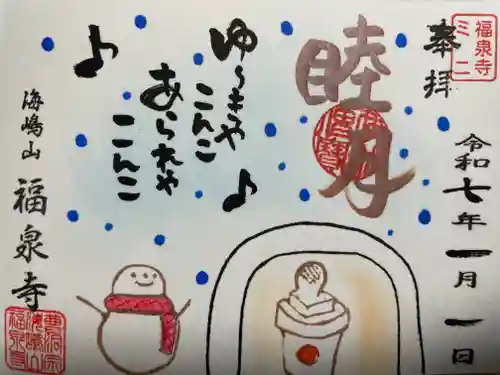 福泉寺
ミニ
奉拝
令和七年一月一日
睦月
ゆ〜きや
こんこ
♪
あられや
こんこ
♪
海嶋山
福泉寺
曹洞宗
海嶋山
福泉寺